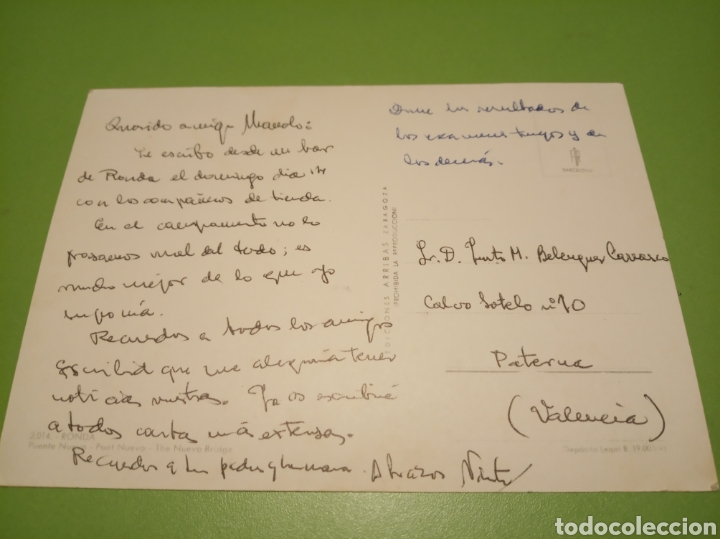 Querido amigo Manolo:
Te escribo desde un bar
de Ronda el domingo dia 14
con los compañeros de tienda.
En el campamento no lo
pasamos mal del todo; es
mucho mejor de lo que yo
suponía.
Recuerdos a todos los amigos
Escribid que me alegraría tener
noticias vuestras. Ya os escribiré
a todos cartas más extensas.
Recuerdos a tus padres y hermana. Abrazos
5014 - RONDA
Puente Nuevo - Pont Nuevo - The Nuevo Bridge
EDICIONES ARRIBAS ZARAGOZA
PROHIBIDA LA REPRODUCCION
Dime los resultados de
los exámenes tuyos y de
los demás.
Sr. D. Justo M. Belenguer Carrasco
Calvo Sotelo nº 10
Paterna
(Valencia)
Depósito Legal B.
todocoleccion